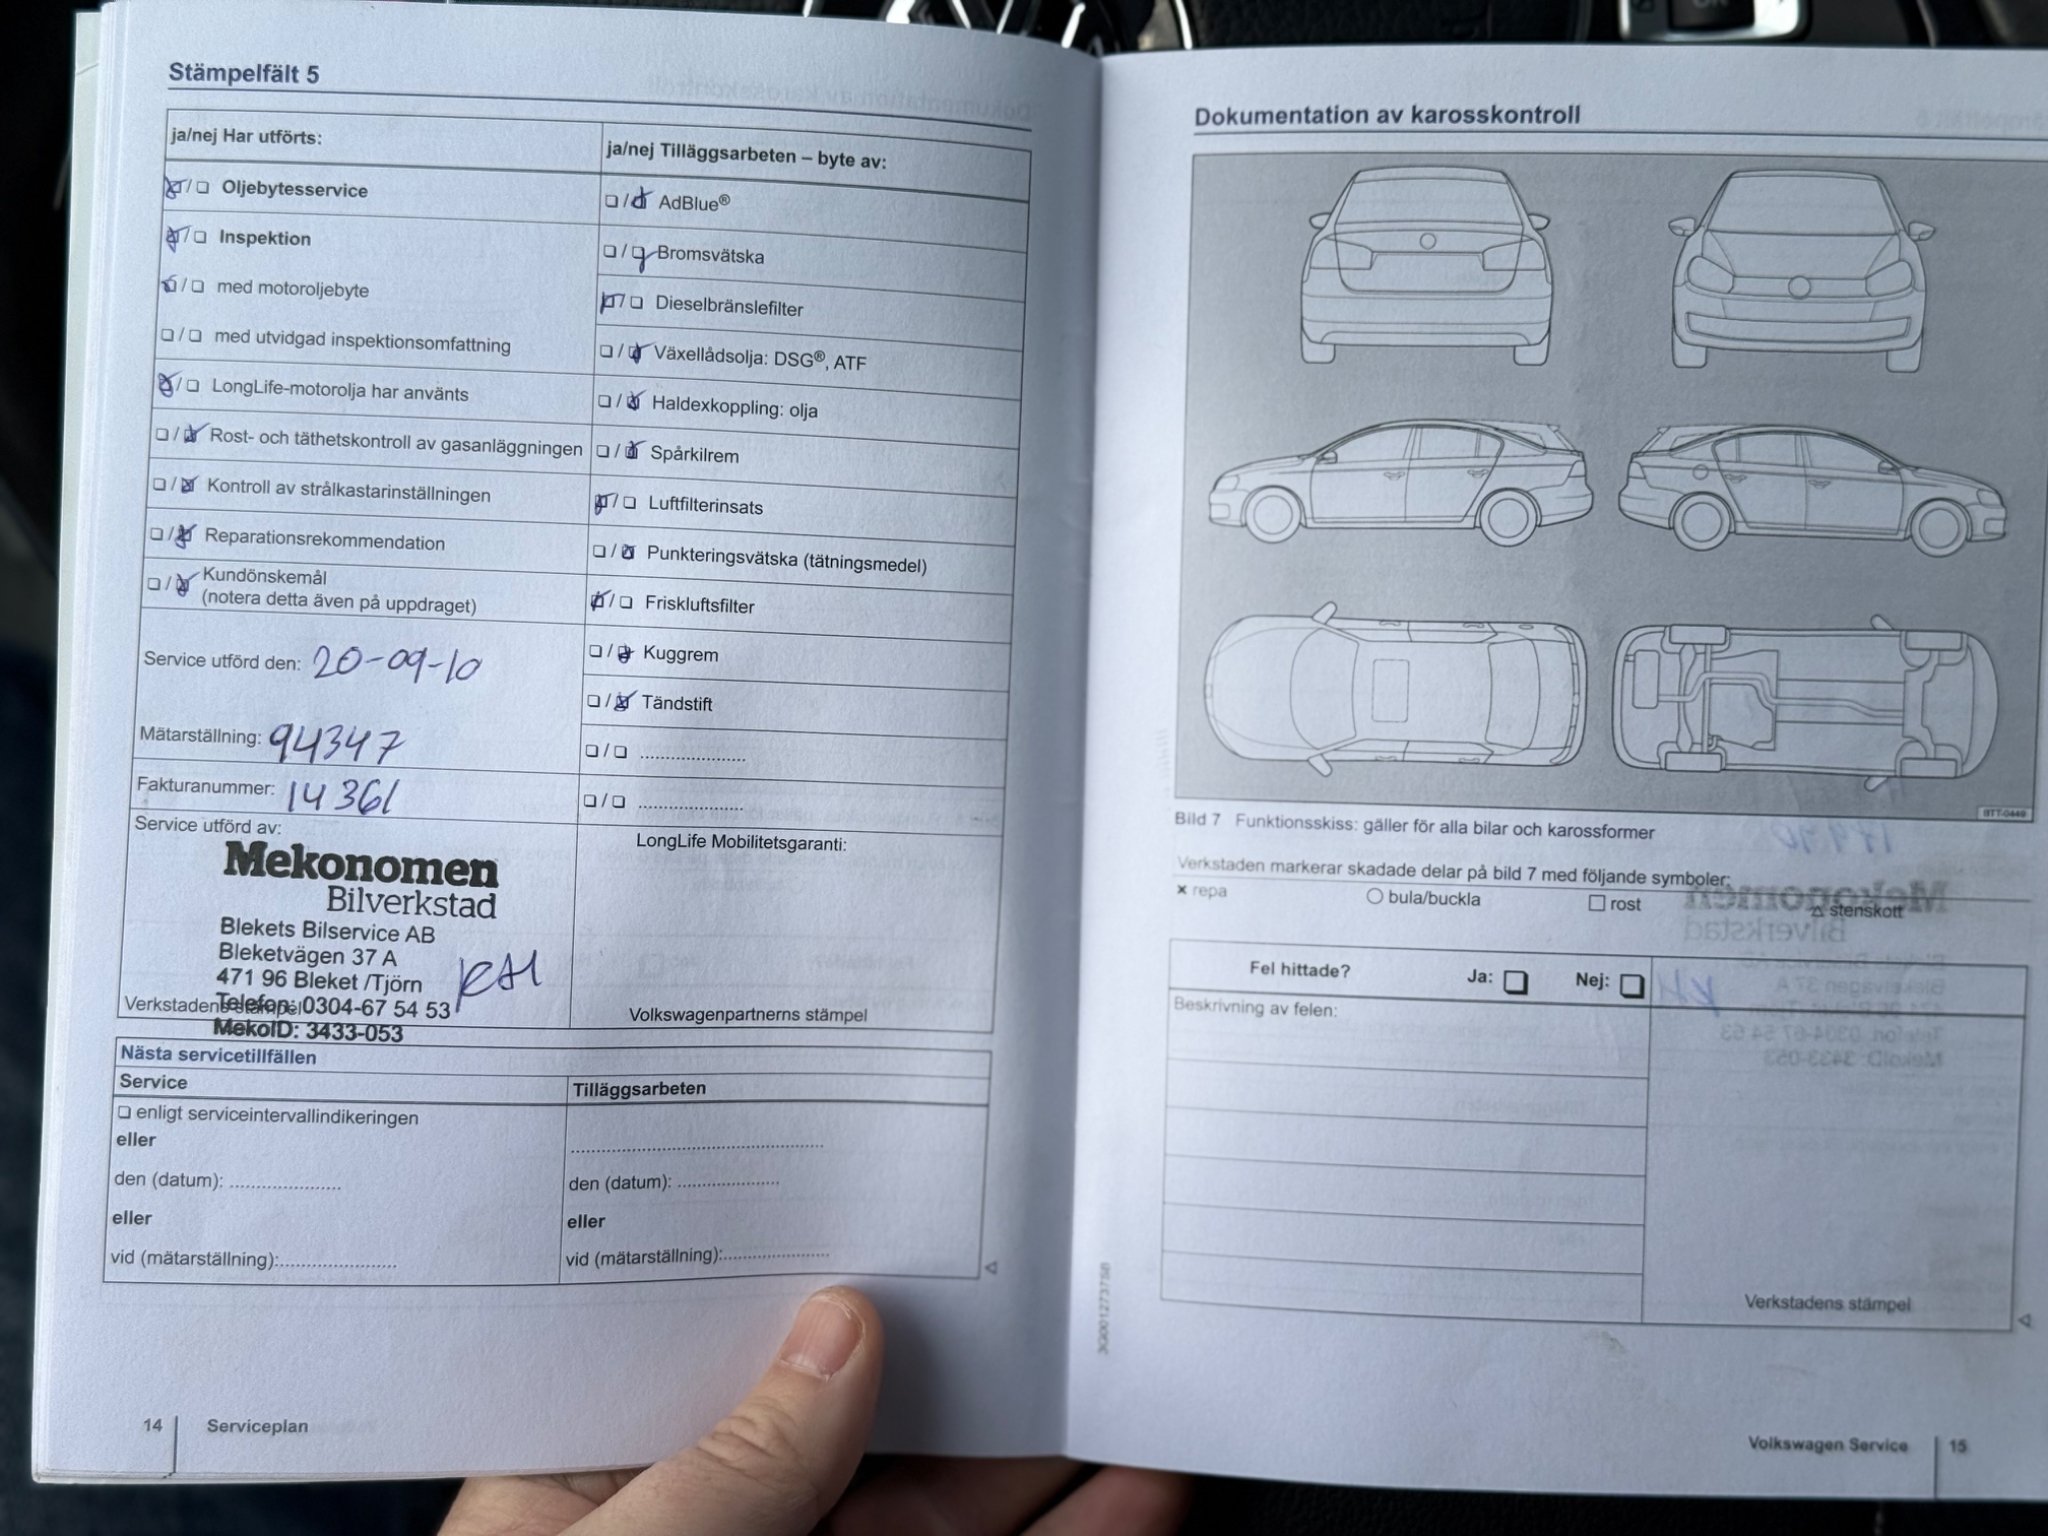 Stämpelfält 5
ja/nej Har utförts:
❏ / ❏ Oljebytesservice
❏ / ❏ Inspektion
❏ / ❏ med motoroljebyte
❏ / ❏ med utvidgad inspektionsomfattning
❏ / ❏ LongLife-motorolja har använts
❏ / ❏ Rost- och täthetskontroll av gasanläggningen
❏ / ❏ Kontroll av strålkastarinställningen
❏ / ❏ Reparationsrekommendation
❏ / ❏ Kundönskemål
(notera detta även på uppdraget)
Service utförd den: 20-09-10
Mätarställning: 94347
Fakturanummer: 14361
Service utförd av:
Mekonomen
Bilverkstad
Blekets Bilservice AB
Bleketvägen 37 A
471 96 Bleket /Tjörn
Telefon: 0304-67 54 53
MekoID: 3433-053
Verkstadens stämpel
ja/nej Tilläggsarbeten – byte av:
❏ / ❏ AdBlue®
❏ / ❏ Bromsvätska
❏ / ❏ Dieselbränslefilter
❏ / ❏ Växellådsolja: DSG®, ATF
❏ / ❏ Haldexkoppling: olja
❏ / ❏ Spårkilrem
❏ / ❏ Luftfilterinsats
❏ / ❏ Punkteringsvätska (tätningsmedel)
❏ / ❏ Friskluftsfilter
❏ / ❏ Kuggrem
❏ / ❏ Tändstift
❏ / ❏ .....................
❏ / ❏ .....................
LongLife Mobilitetsgaranti:
Volkswagenpartnerns stämpel
Nästa servicetillfällen
Service
❏ enligt serviceintervallindikeringen
eller
den (datum): .....................
eller
vid (mätarställning):.....................
Tilläggsarbeten
..............................................
den (datum): ...................
eller
vid (mätarställning):...................
14 Serviceplan
Dokumentation av karosskontroll
BTT-0449
Bild 7 Funktionsskiss: gäller för alla bilar och karossformer
Verkstaden markerar skadade delar på bild 7 med följande symboler:
× repa ○ bula/buckla □ rost △ stenskott
Fel hittade? Ja: ❏ Nej: ❏
Beskrivning av felen:
Verkstadens stämpel
Volkswagen Service 15